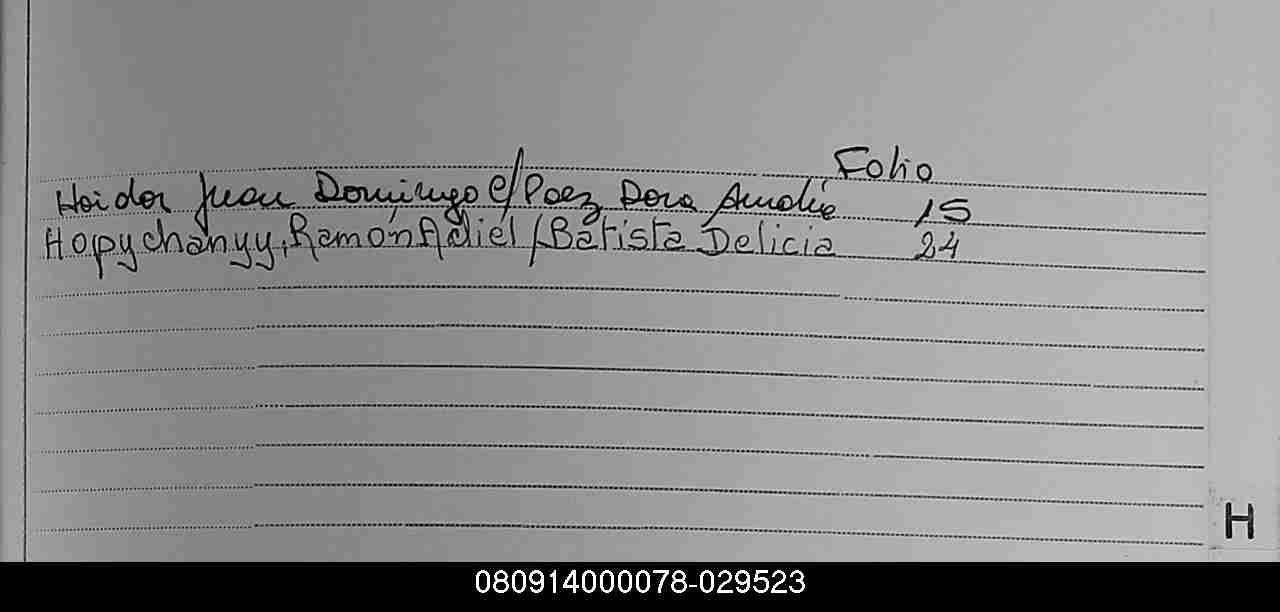 Folio
Haidar Juan Domingo c/ Paez Dora Amalia 15
Hopychanyy, Ramón Adiel / Batista Delicia 24
H
080914000078-029523